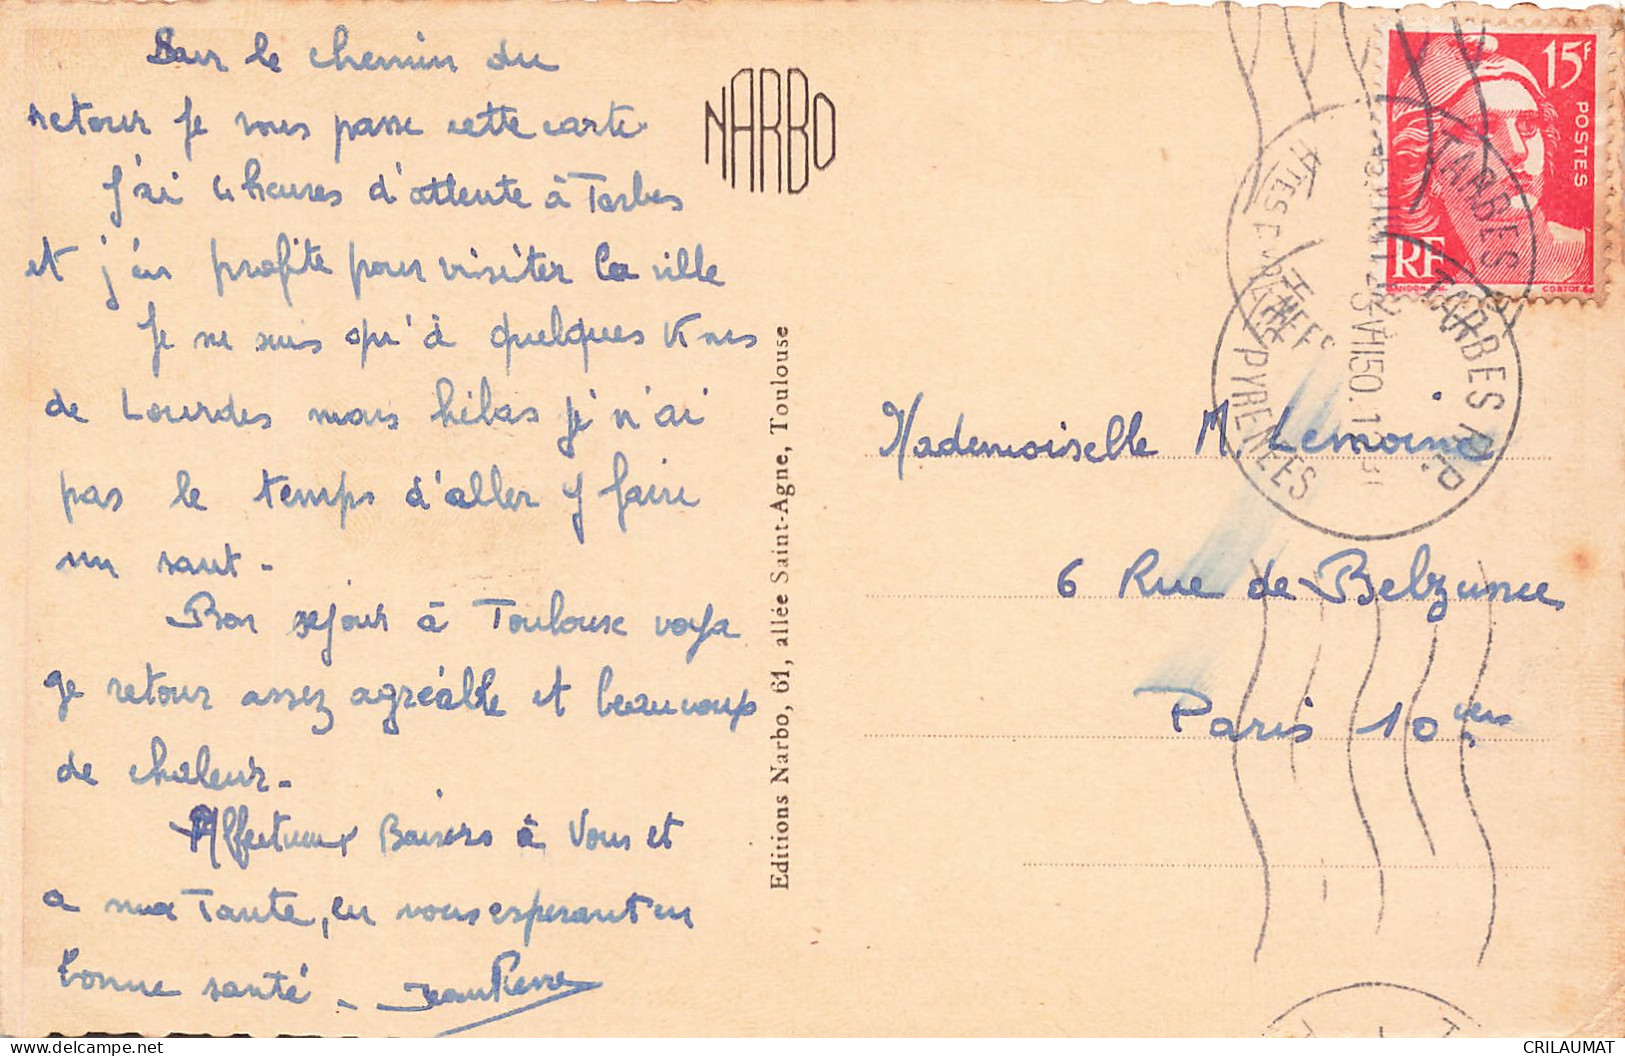 Sur le chemin du
retour je vous passe cette carte
J'ai 4 heures d'attente à Tarbes
et j'en profite pour visiter la ville
Je ne suis qu'à quelques Kms
de Lourdes mais hélas je n'ai
pas le temps d'aller y faire
un saut -
Bon séjour à Toulouse voya
ge retour assez agréable et beaucoup
de chaleur -
Affectueux Baisers à Vous et
a ma Tante, en vous esperant en
bonne santé - Jean Pierre
NARBO
Editions Narbo, 61, allée Saint-Agne, Toulouse
15F
POSTES
RF
GANDON
CORTOT
TARBES
TARBES R.P.
HTES PYRENEES
PYRENEES
Mademoiselle M. Lemoine
6 Rue de Belzunce
Paris 10
CRILAUMAT